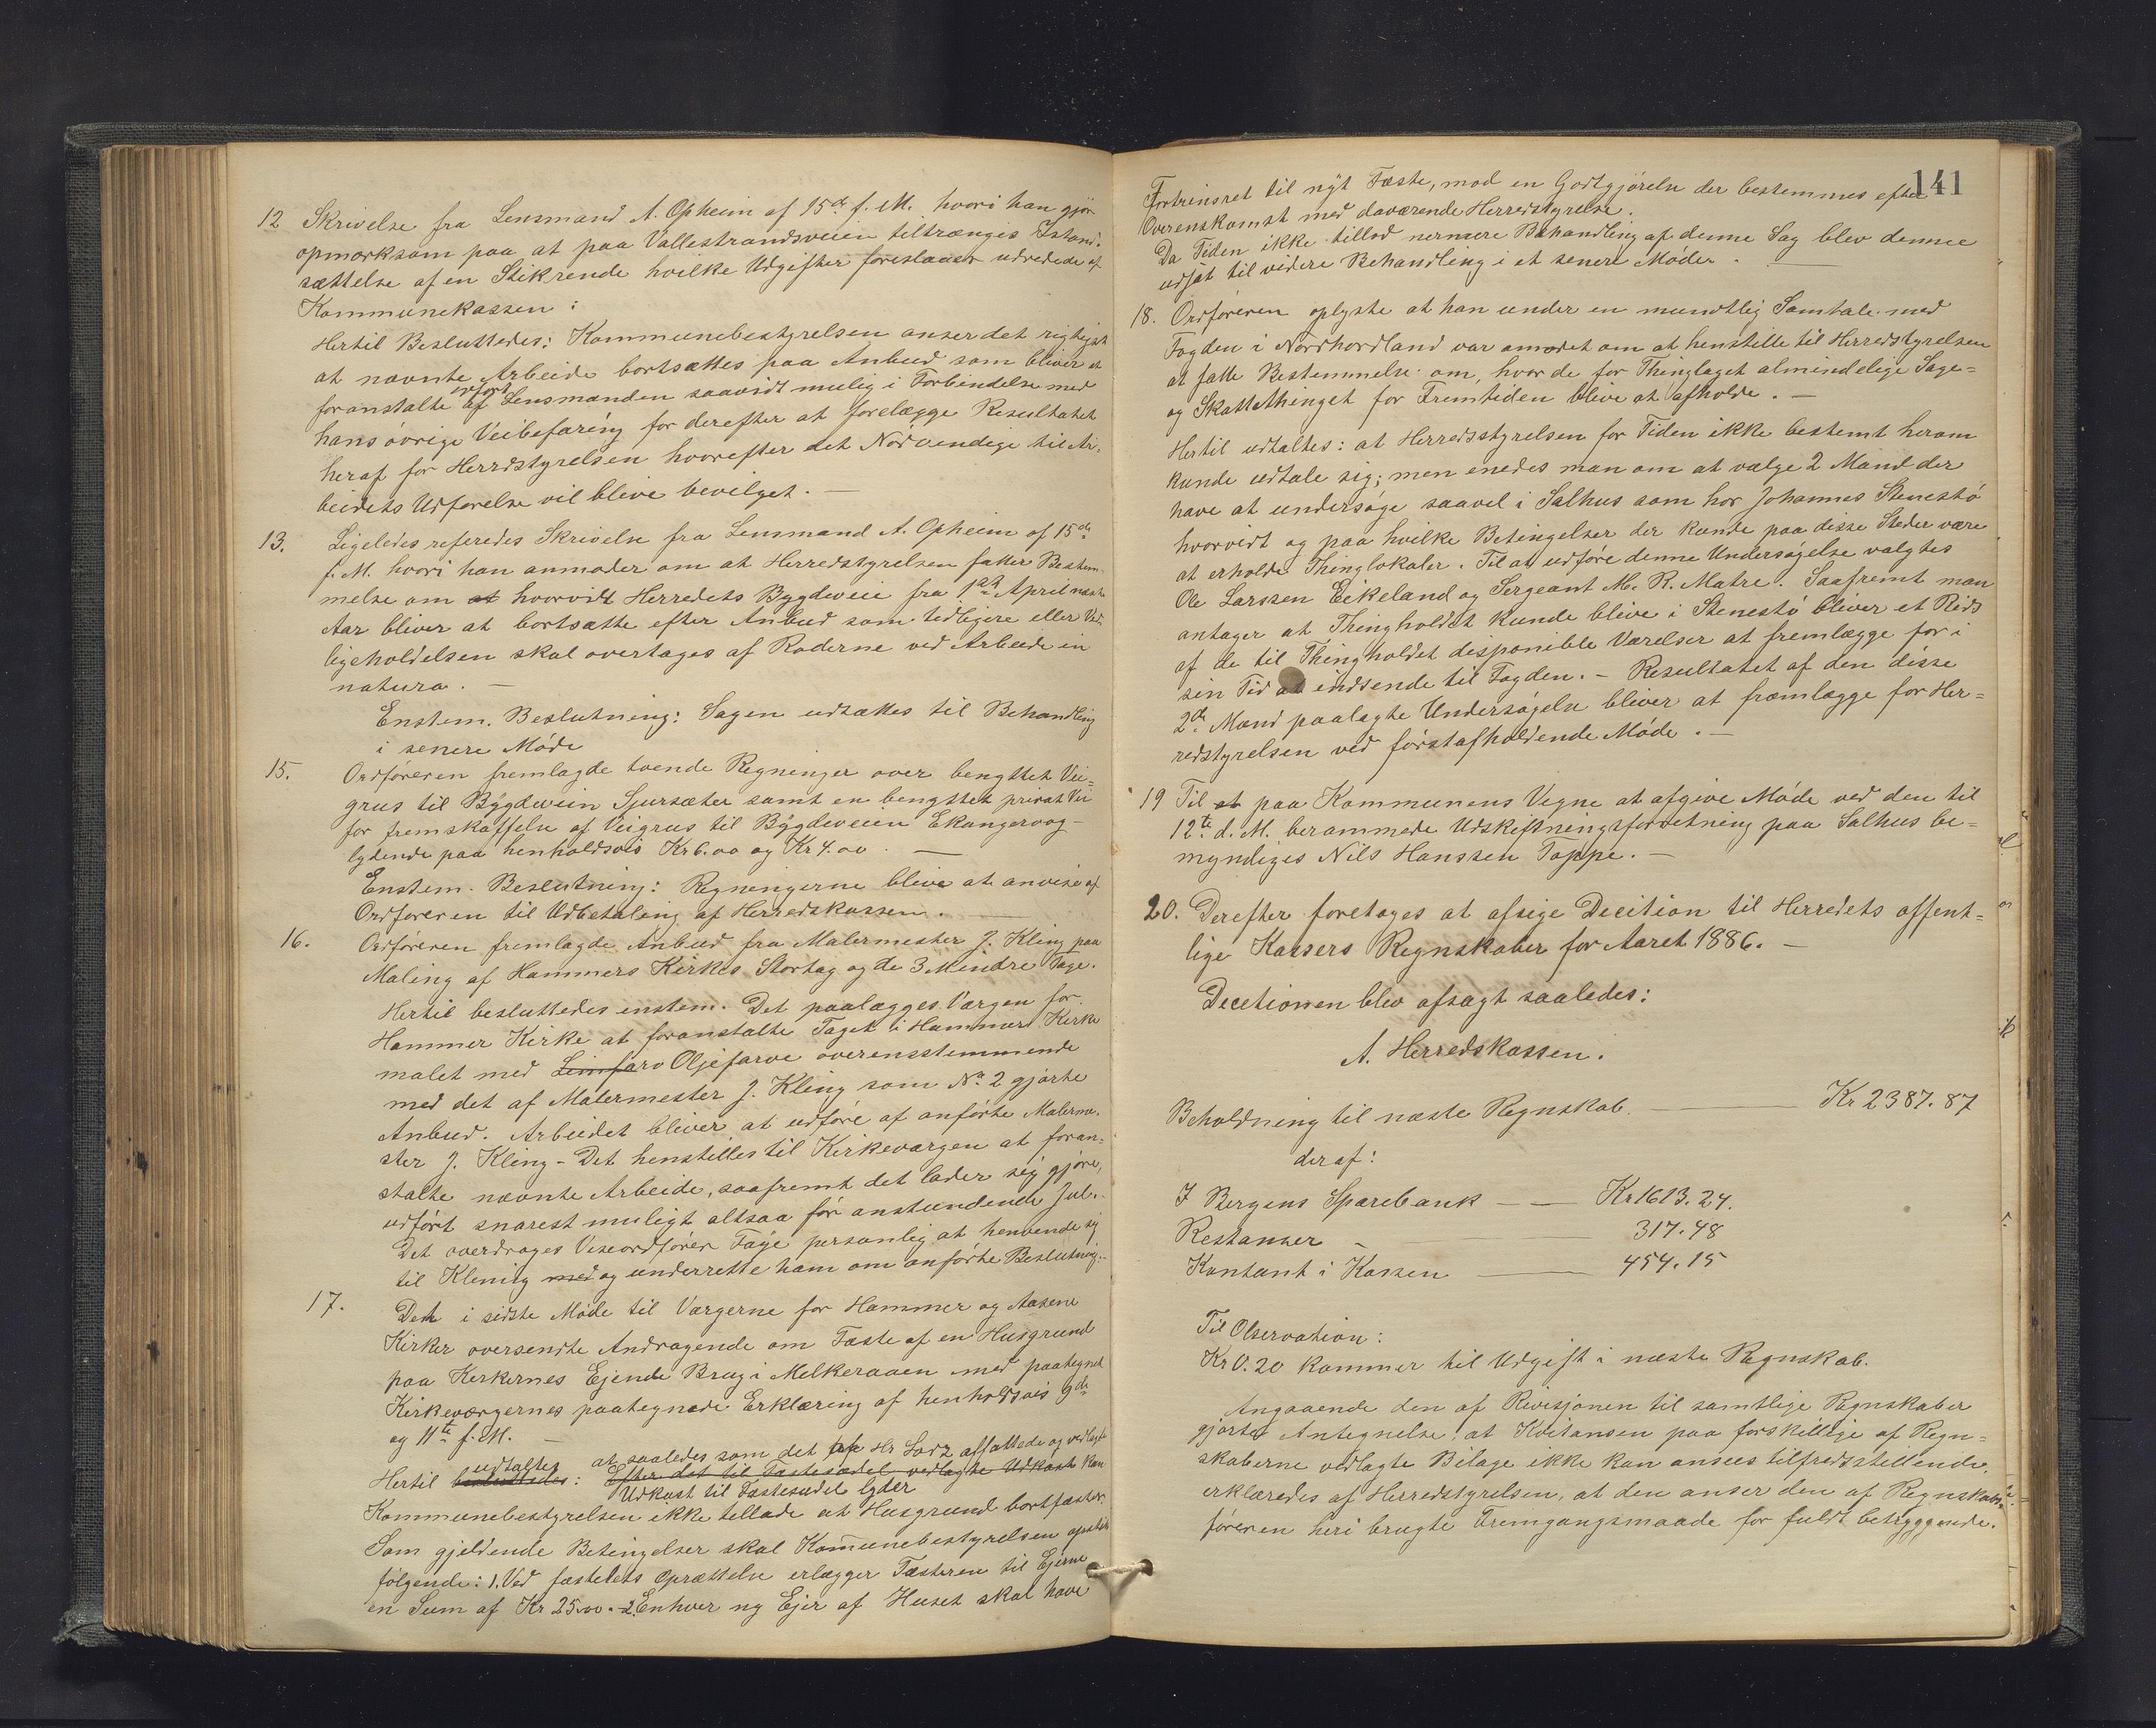 12 Skrivelse fra Lensmand A. Opheim af 15de f. M. hvori han gjør
opmærksom paa at paa Vallestrandsveien tiltrænges Istand-
sættelse af en Stikrende hvilke Udgifter foreslaaes udredede af
Kommunekassen:
Hertil Besluttedes: Kommunebestyrelsen anser det rigtigst
at nævnte Arbeide bortsættes paa Anbud som bliver at
foranstalte af Lensmanden saavidt mulig i Forbindelse med
hans øvrige Veibefaring for derefter at forelægge Resultatet
heraf for Herredstyrelsen hvorefter det Nødvendige til Ar-
beidets Udførelse vil blive bevilget. —
13. Ligeledes referedes Skrivelse fra Lensmand A. Opheim af 15de
f. M. hvori han anmoder om at Herredstyrelsen fatter Bestem-
melse om at hvorvidt Herredets Bygdeveie fra 1ste April næste
Aar bliver at bortsætte efter Anbud som tidligere eller Ved-
ligeholdelsen skal overtages af Roderne ved Arbeide in
natura. —
Enstem. Beslutning: Sagen udsættes til Behandling
i senere Møde
15. Ordføreren fremlagde tvende Regninger over benyttet Vei-
grus til Bygdeveien Sjursæter samt en benyttet privat Vei
for fremskaffelse af Veigrus til Bygdeveien Ekangervog-
lydende paa henholdsvis Kr 6.00 og Kr 4.00. —
Enstem. Beslutning: Regningerne bleve at anvise af
Ordføreren til Udbetaling af Herredskassen. —
16. Ordføreren fremlagde Anbud fra Malermester J. Kling paa
Maling af Hammers Kirkes Stortag og de 3 Mindre Tage.
Hertil besluttedes enstem. Det paalægges Værgen for
Hammer Kirke at foranstalte Taget i Hammer Kirke
malet med Limfarv Oljefarve overensstemmende
med det af Malermester J. Kling som No 2 gjorte
Anbud. Arbeidet bliver at udføre af anførte Malerme-
ster J. Kling - Det henstilles til Kirkeværgen at foran-
stalte nævnte Arbeide, saafremt det lader sig gjøre,
udført snarest muligt altsaa før anstundende Jul.-
Det overdrages Viseordfører Faye personlig at henvende sig
til Klening med og underrette ham om anførte Beslutning.-
17. Det i sidste Møde til Værgerne for Hammer og Aasene
Kirker oversendte Andragende om Fæste af en Husgrund
paa Kirkernes Ejende Brug i Melkeraaen med paategnet
Kirkeværgernes paategnede Erklæring af henholdsvis 9de
og 11te f. M. —
udtaltes at saaledes som det af Hr Lorz affattede og vedlagte
Hertil besluttedes: Efter det til Fæstesedel vedlagte Udkast kan
Udkast til Fæstesedel lyder
Kommunebestyrelsen ikke tillade at Husgrund bortfæstes.
Som gjeldende Betingelser skal Komunebestyrelsen opstille
følgende: 1. Ved fæstelets Oprættelse erlægger Fæsteren til Ejerne
en Sum af Kr 25.00. - 2. Enhver ny Ejer af Huset skal have
141
Fortrinsret til nyt Fæste, mod en Godtgjørelse der bestemmes efter
Overenskomst med daværende Herredstyrelse.
Da Tiden ikke tillod nermere Behandling af denne Sag blev denne
udsat til videre Behandling i et senere Møde. —
18. Ordføreren oplyste at han under en mundtlig Samtale med
Fogden i Nordhordland var anmodet om at henstille til Herredstyrelsen
at fatte Bestemmelse om, hvor de for Thinglaget almindelige Sage-
og Skattethinget for Fremtiden blive at afholde. —
Hertil udtaltes: at Herredsstyrelsen for Tiden ikke bestemt herom
kunde udtale sig; men enedes man om at vælge 2 Mænd der
have at undersøge saavel i Salhus som hos Johannes Stenestø
hvorvidt og paa hvilke Betingelser der kunde paa disse Steder være
at erholde Thinglokaler. Til at udføre denne Undersøgelse valgtes
Ole Larssen Eikeland og Sergeant M. R. Matre. Saafremt man
antager at Thingholdet kunde blive i Stenestø bliver et Rids
af de til Thingholdet disponible Værelser at fremlægge for i
sin Tid at indsende til Fogden. - Resultatet af den disse
2de Mænd paalagte Undersøgelse bliver at fræmlægge for Her-
redstyrelsen ved førstafholdende Møde. —
19 Til at paa Kommunens Vegne at afgive Møde ved den til
12te d. M. berammede Udskiftningsforretning paa Salhus be-
myndiges Nils Hanssen Toppe. —
20. Derefter foretoges at afsige Decition til Herredets offent-
lige Kassers Regnskaber for Aaret 1886. —
Decitionen blev afsagt saaledes:
A. Herredskassen.
Beholdning til næste Regnskab. — Kr 2387.87
deraf:
I Bergens Sparebank — Kr 1613.24.
Restanser — 317.48
Kontant i Kassen — 454.15
Til Observation:
Kr 0.20 kommer til Udgift i næste Regnskab.
Angaaende den af Revisjonen til samtlige Regnskaber
gjorte Antegnelse at Kvitansen paa forskillige af Regn-
skaberne vedlagte Bilage ikke kan ansees tilfredsstillende,
erklæredes af Herredstyrelsen, at den anser den af Regnskabs-
føreren heri brugte Fremgangsmaade for fuldt betryggende.